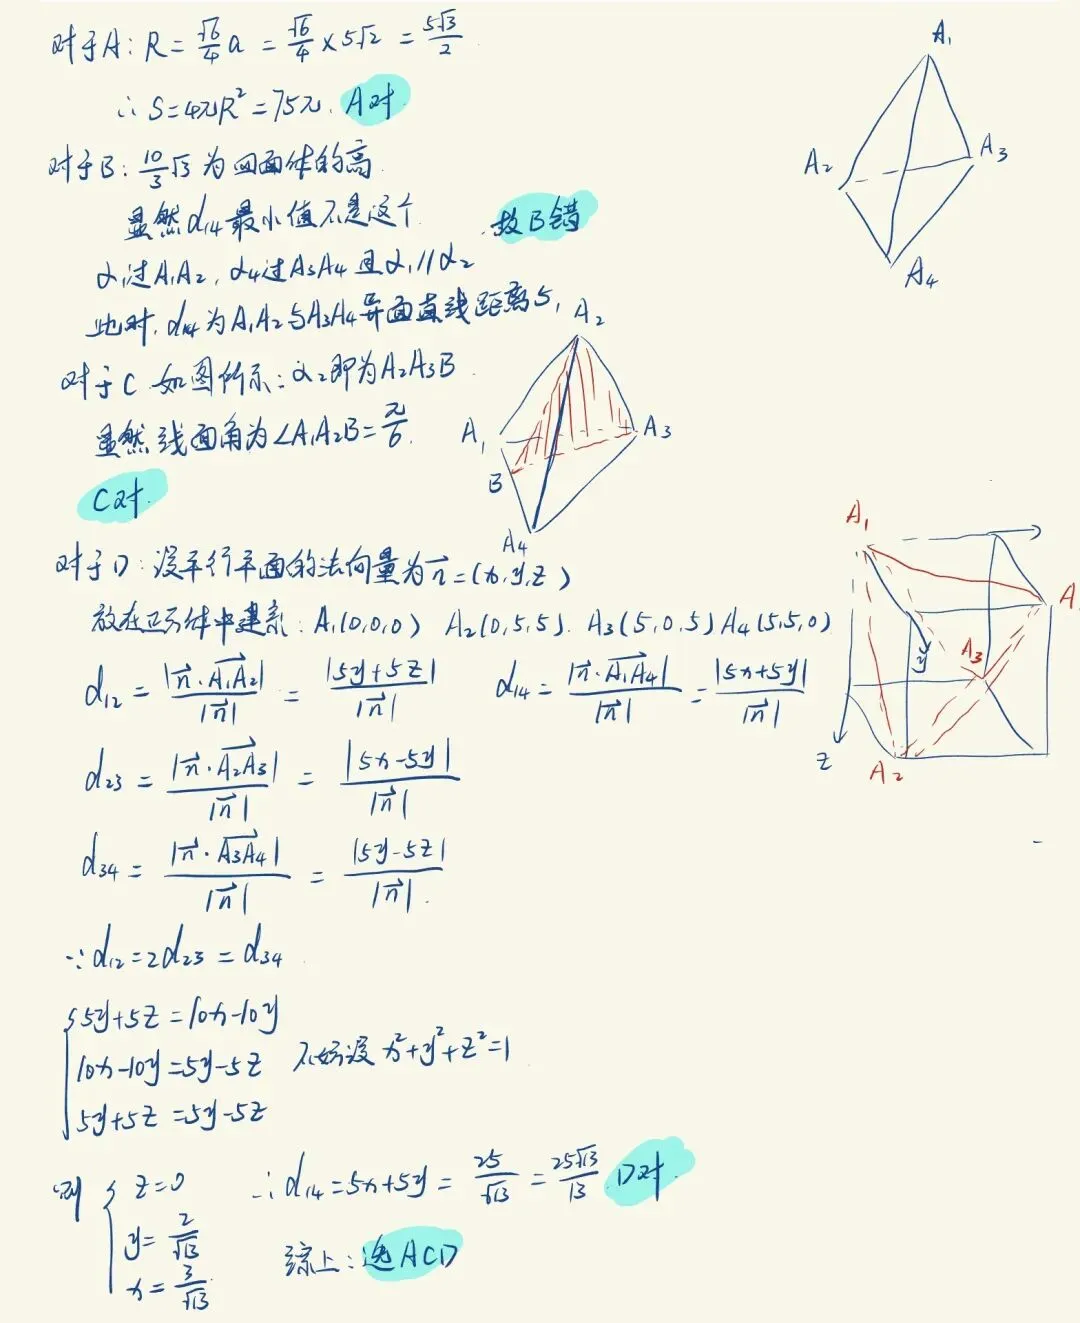 对于A: R = √6/4 a = √6/4 × 5√2 = 5√3/2
∴ S = 4πR² = 75π. A对
对于B: 10/3 √3 为四面体的高.
显然 d₁₄ 最小值不是这个. 故B错
α₁过A₁A₂, α₄过A₃A₄ 且 α₁∥α₂
此时, d₁₄ 为A₁A₂与A₃A₄异面直线距离5,
对于C 如图所示: α₂即为A₂A₃B
显然 线面角为∠A₁A₂B = π/6.
C对.
对于D: 设平行平面的法向量为 n⃗ = (x, y, z)
放在正方体中建系: A₁(0,0,0) A₂(0,5,5). A₃(5,0,5) A₄(5,5,0)
d₁₂ = |n⃗·A₁A₂⃗|/|n⃗| = |5y+5z|/|n⃗| d₁₄ = |n⃗·A₁A₄⃗|/|n⃗| = |5x+5y|/|n⃗|
d₂₃ = |n⃗·A₂A₃⃗|/|n⃗| = |5x-5y|/|n⃗|
d₃₄ = |n⃗·A₃A₄⃗|/|n⃗| = |5y-5z|/|n⃗|.
∵ d₁₂ = 2d₂₃ = d₃₄
{ 5y+5z = 10x-10y
10x-10y = 5y-5z 不妨设 x²+y²+z²=1
5y+5z = 5y-5z
则 { z=0 ∴ d₁₄ = 5x+5y = 25/√13 = 25√13/13. D对.
y = 2/√13
x = 3/√13
综上: 选ACD
A₁
A₂
A₃
A₄
A₂
A₁
A₃
B
A₄
A₁
A
A₃
y
z
A₂